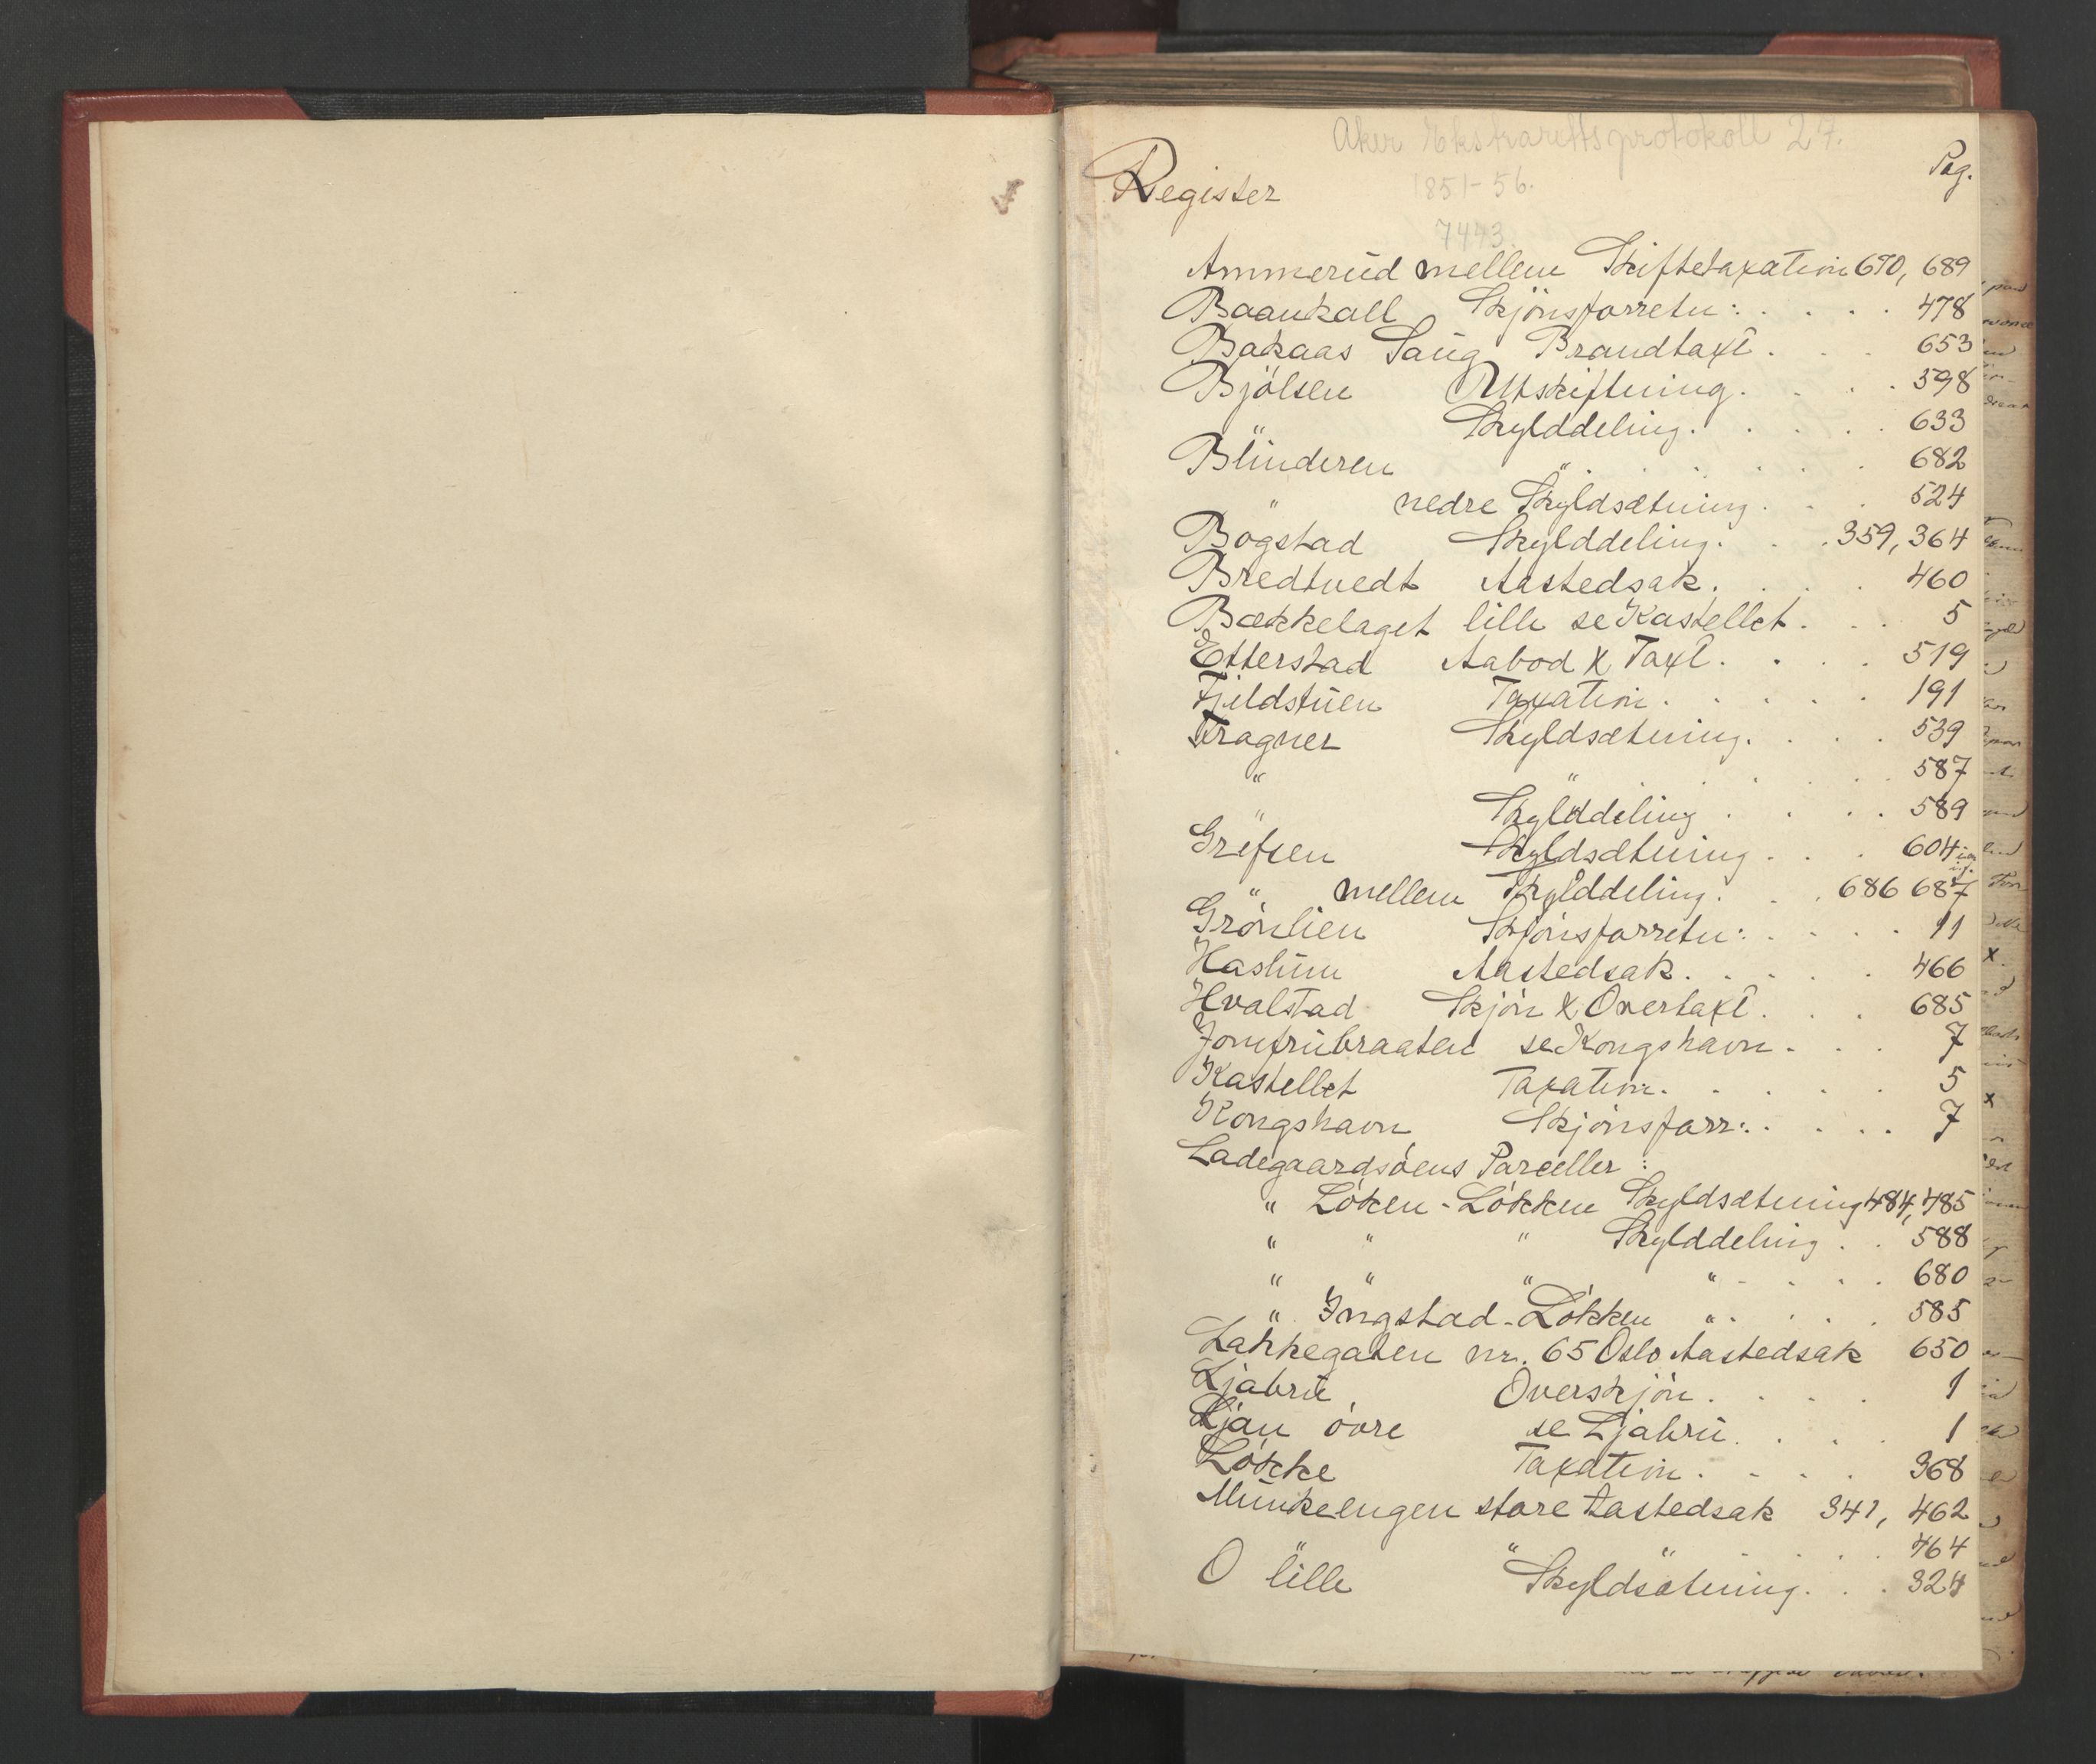 Aker Ekstrarettsprotokoll 27.
1851-56.
7443.
Register Pag.
Ammerud mellem Skiftetaxation 670, 689
Baankall Skjönsforretn: 478
Bakaas Saug Brandtaxt 653
Bjölsen Utskiftning 398
" Skylddeling 633
Blinderen " 682
" nedre Skyldsætning 524
Bogstad Skylddeling 359, 364
Bredtvedt Aastedsak 460
Bækkelaget lille se Kastellet 5
Etterstad Aabod & Taxt 519
Fjeldstuen Taxation 191
Frogner Skyldsætning 539
" " 587
" Skylddeling 589
Grefsen Skyldsætning 604
" mellem Skylddeling 686 687
Grönlien Skjönsforretn: 11
Haslum Aastedsak 466
Hvalstad Skjön & Overtaxt 685
Jomfrubraaten se Kongshavn 7
Kastellet Taxation 5
Kongshavn Skjönsforr: 7
Ladegaardsöens Parceller:
" Löken-Lökken Skyldsætning 484, 485
" " " Skylddeling 588
" " " " 680
" Ingstad-Lökken " 585
Lakkegaten nr. 65 Oslo Aastedsak 650
Ljabru Overskjön 1
Ljan övre se Ljabru 1
Lökke Taxation 368
Munkeengen store Aastedsak 341, 462
" " " 464
O lille Skyldsætning 324